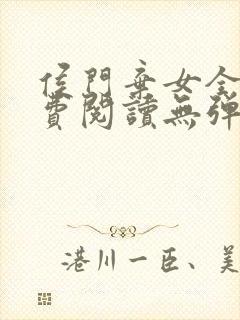 侯門棄女全
費閱讀無彈
港川一臣、美